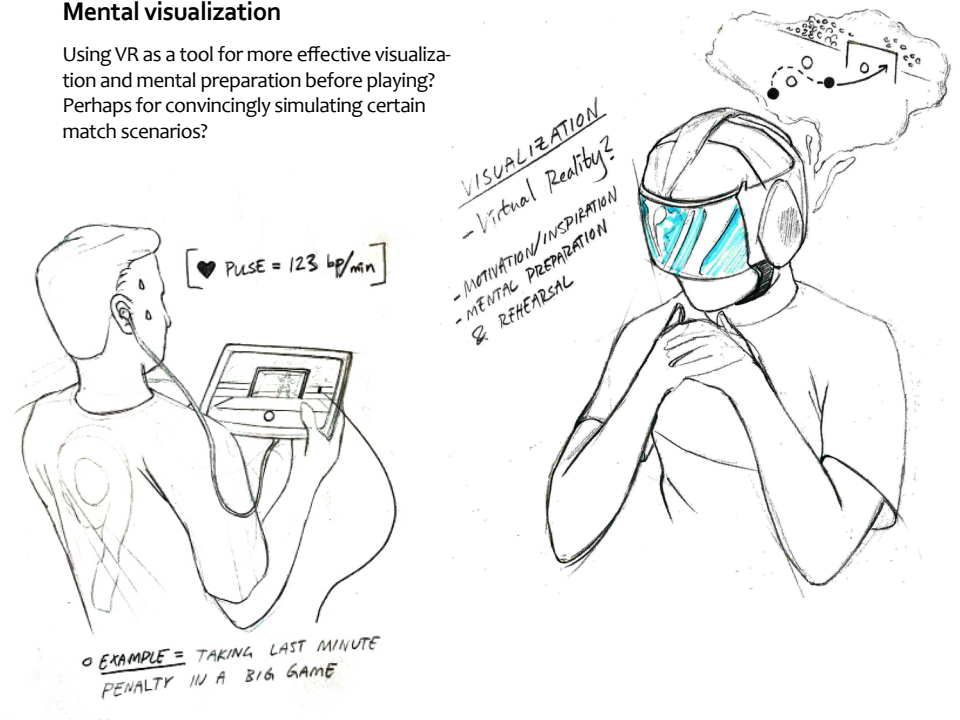 Mental visualization
Using VR as a tool for more effective visualiza-
tion and mental preparation before playing?
Perhaps for convincingly simulating certain
match scenarios?
VISUALIZATION
- Virtual Reality?
- MOTIVATION/INSPIRATION
- MENTAL PREPARATION
& REHEARSAL
[♥ PULSE = 123 bp/min]
o EXAMPLE = TAKING LAST MINUTE
PENALTY IN A BIG GAME